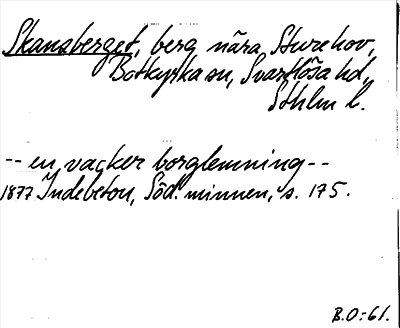 Skansberget, berg nära Sturehov,
Botkyrka sn, Svartlösa hd,
Sthlm l.
-- en vacker borglemning --
1877 Indebetou, Söd. minnen, s. 175.
B.O:61.